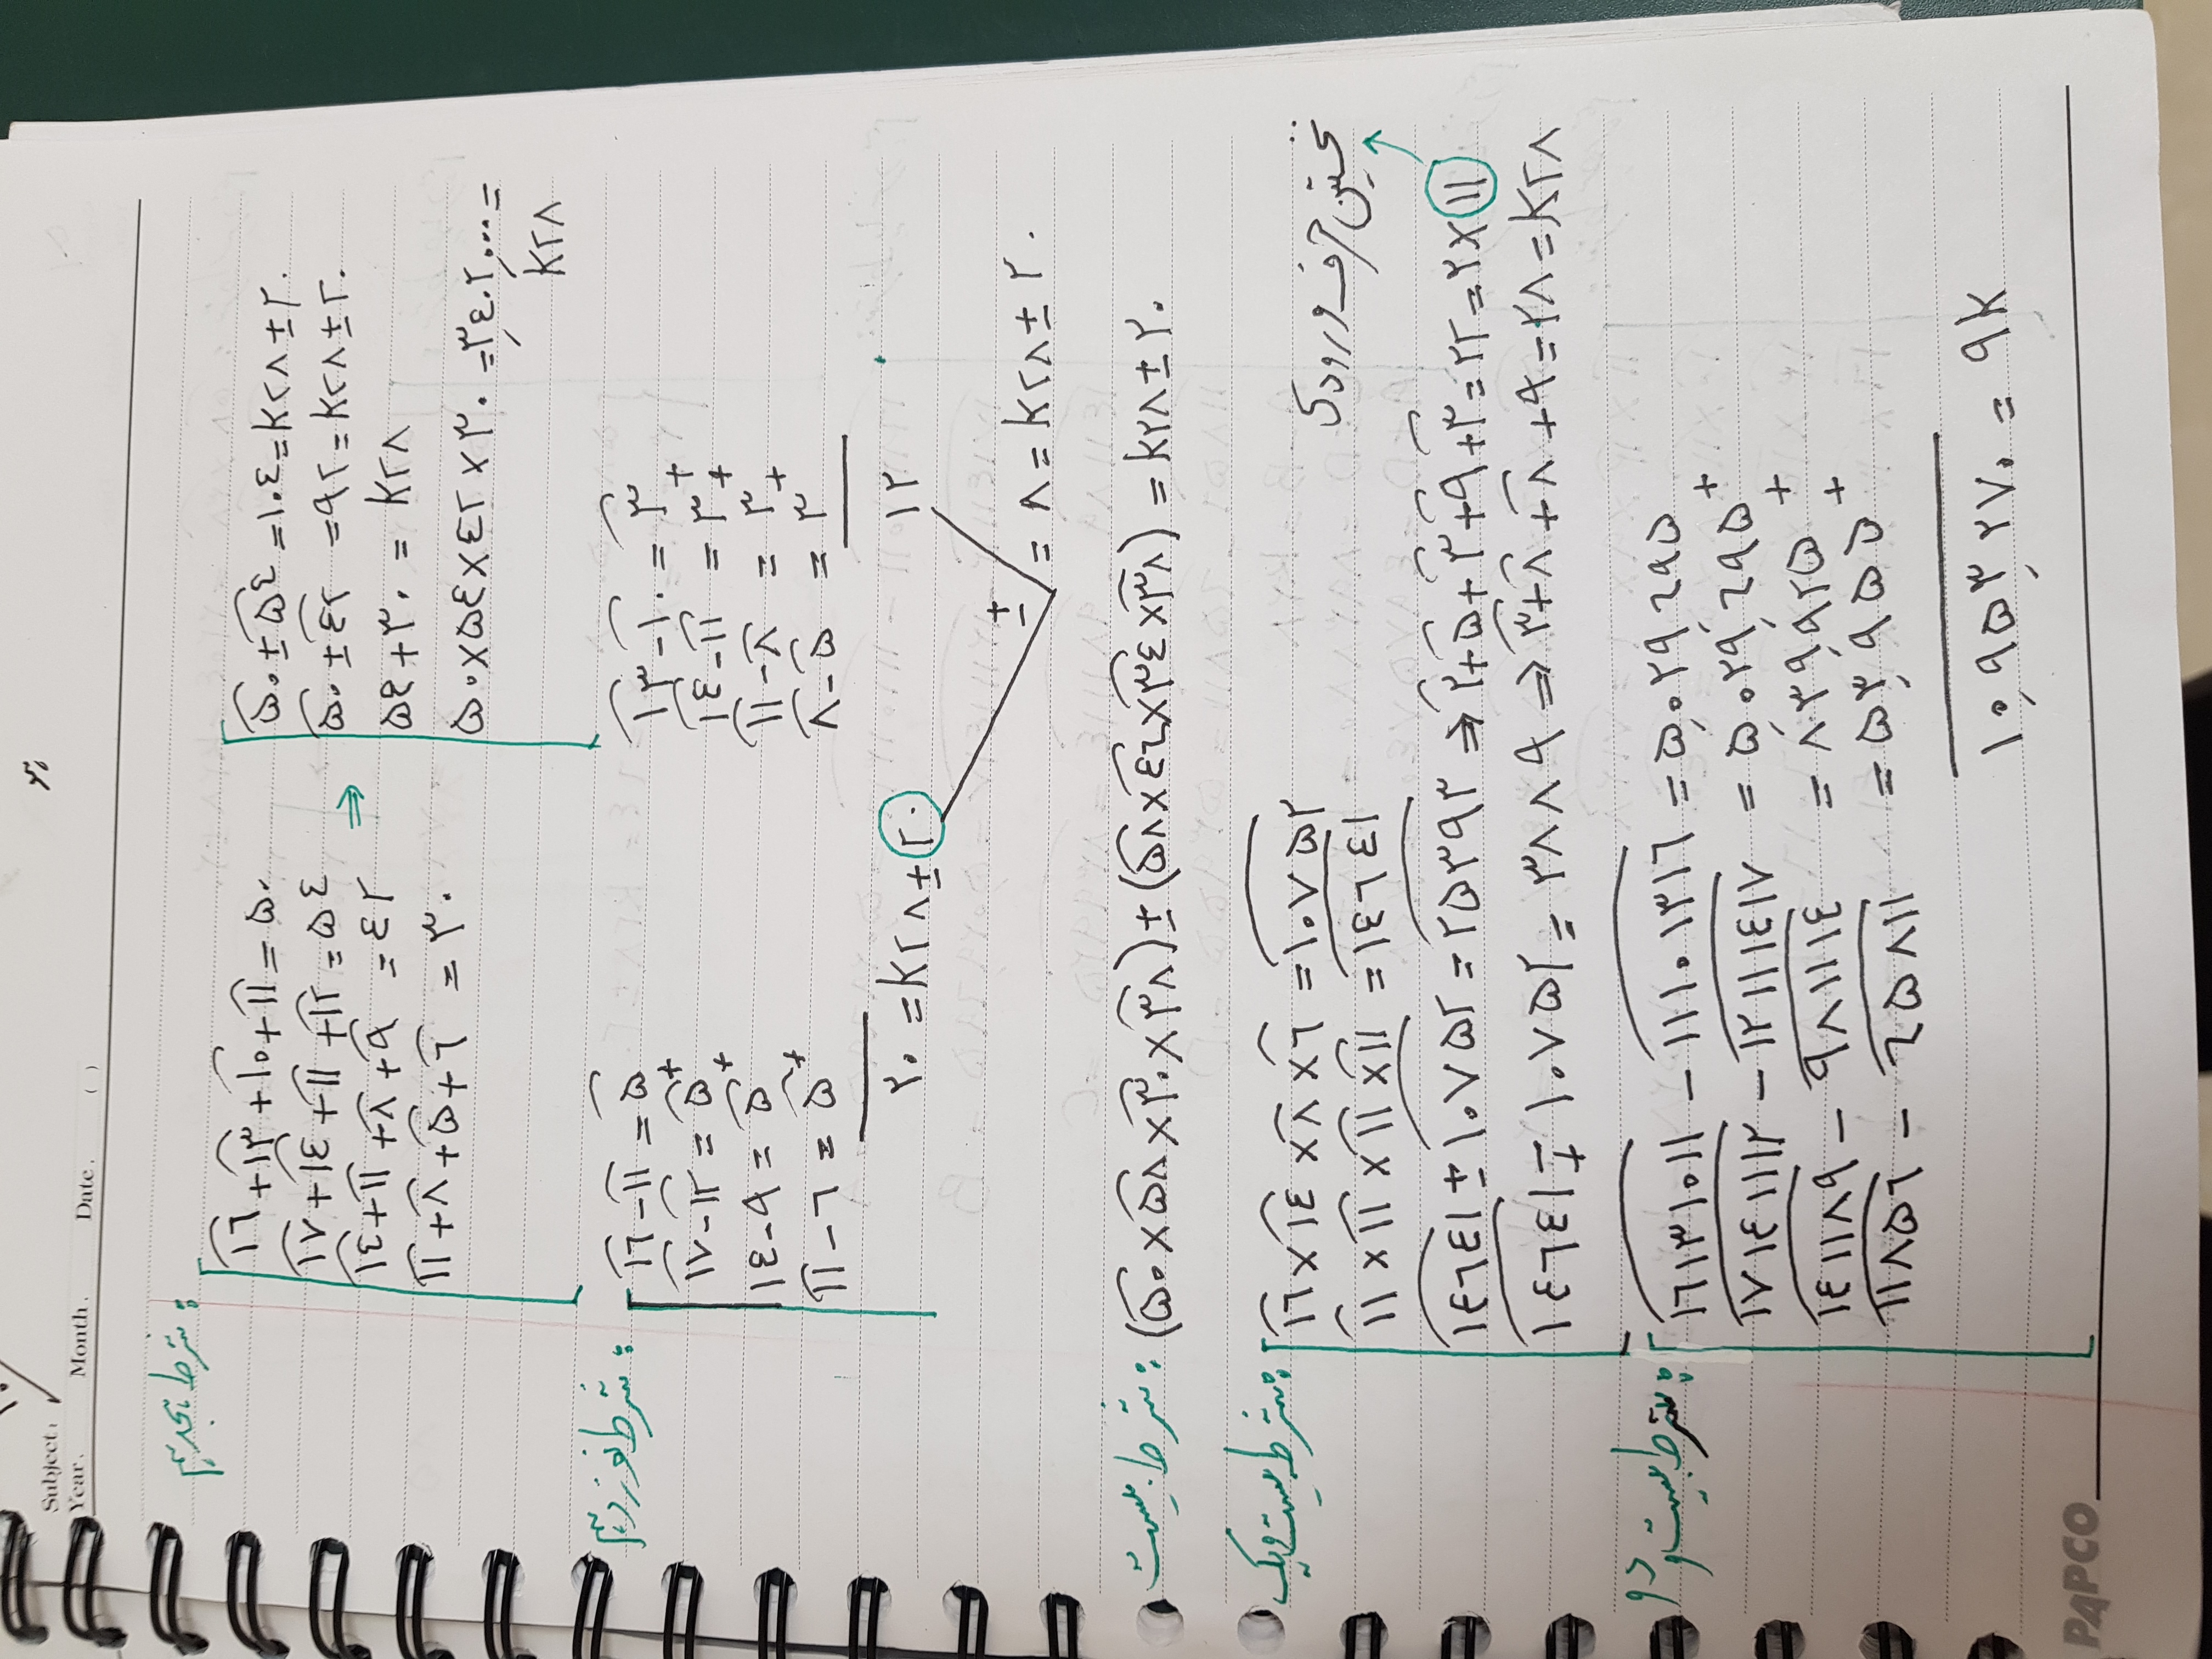 Subject:
Year. Month. Date. ( )
۳۰
شرط هجدهم:
۱۶+۱۳+۱۰+۱۱=۵۰
۱۷+۱٤+۱۱+۱۲=۵٤
۱٤+۱۱+۸+۹=٤۲
۱۱+۸+۵+۶=۳۰
⇒
۵۰±۵٤=۱۰٤=K۲۸±۲۰
۵۰±٤۲=۹۲=K۲۸±۲۰
۵٤+۳۰=K۲۸
۵۰×۵٤×٤۲×۳۰=۳,٤۰۲,۰۰۰=
K۲۸
شرط نوزدهم:
۱۶-۱۱=۵
۱۷-۱۲=۵+
۱٤-۹=۵+
۱۱-۶=۵+
۲۰=K۲۸±۲۰
۱۳-۱۰=۳
۱٤-۱۱=۳+
۱۱-۸=۳+
۸-۵=۳+
۱۲
±
=۸=K۲۸±۲۰
شرط بیست: (۵۰×۵۸×۳۰×۳۸)±(۵۸×٤۶×۳٤×۳۸)=K۲۸±۲۰
شرط بیست و یک:
۱۶×۱٤×۸×۶=۱۰۷۵۲
۱۱×۱۱×۱۱×۱۱=۱٤۶٤۱
نخستین حرف ورودی
۱٤۶٤۱±۱۰۷۵۲=۲۵۳۹۳⇒۲+۵+۳+۹+۳=۲۲=۲×۱۱
۱٤۶٤۱∓۱۰۷۵۲=۳۸۸۹⇒۳+۸+۸+۹=۲۸=K۲۸
شرط بیست و دو:
۱۶۱۳۱۰۱۱-۱۱۱۰۱۳۱۶=۵,۰۲۹,۶۹۵
۱۷۱٤۱۱۱۲-۱۲۱۱۱٤۱۷=۵,۰۲۹,۶۹۵+
۱٤۱۱۸۹-۹۸۱۱۱٤=۸۳۹,۹۲۵+
۱۱۸۵۶-۶۵۸۱۱=۵۳,۹۵۵+
۱۰,۹۵۳,۲۷۰=۹K
PAPCO